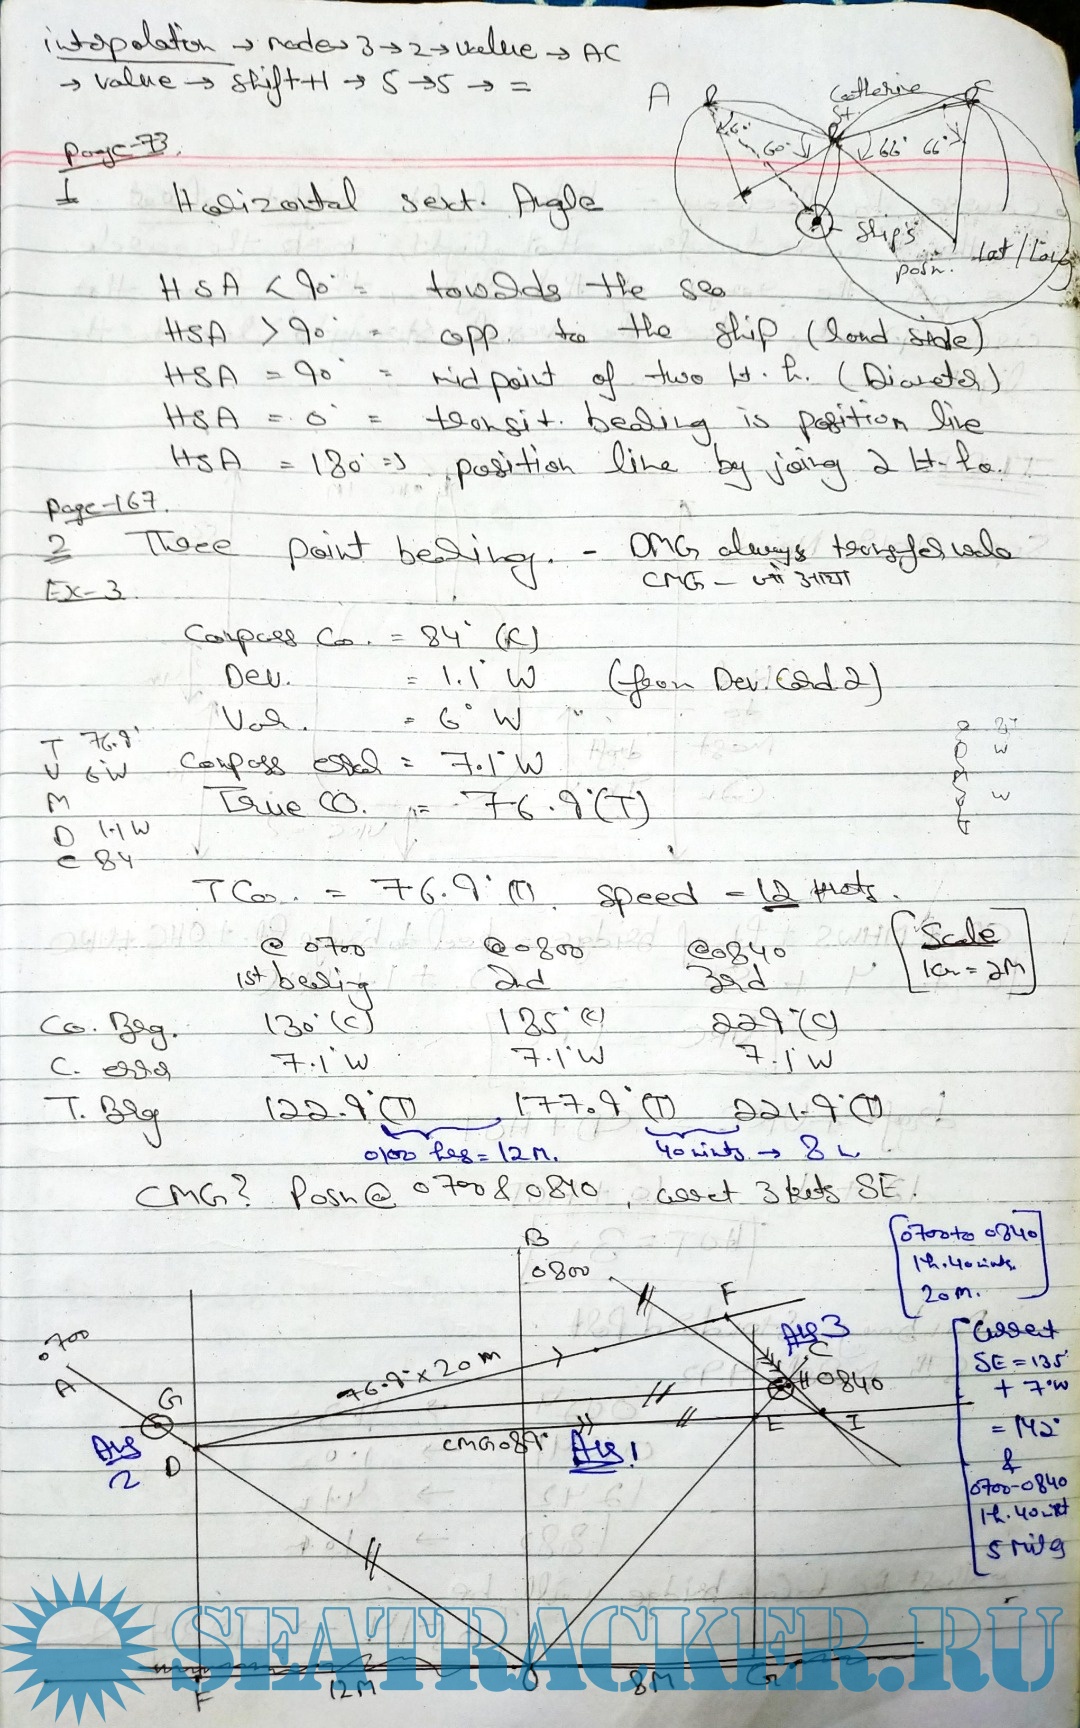 interpolation → mode → 3 → 2 → value → AC
→ value → shift+1 → 5 → 5 → =
A
Catherine
St
60°
60°
66°
66°
ship's
posn.
Lat / Long
Page-73.
1 Horizontal sext. Angle
HSA < 90° = towards the sea
HSA > 90° = opp. to the ship (land side)
HSA = 90° = midpoint of two H.h. (Diameter)
HSA = 0° = transit. bearing is position line
HSA = 180° => position line by joing 2 H.ho.
Page-167.
2 Three point bearing. - DMG always transfer
CMG -
Ex-3
Compass Co. = 84° (C)
Dev. = 1.1° W (from Dev. Card.2)
Var. = 6° W "
Compass error = 7.1° W
True CO. = 76.9° (T)
T 76.9°
V 6°W
M
D 1.1 W
C 84
D W
W
T
T Co. = 76.9° (T) speed = 12 knots.
Scale
1cm = 2M
@ 0700 @ 0800 @ 0840
1st bearing 2nd 3rd
Co. Brg. 130° (C) 185° (C) 229° (C)
C. error 7.1° W 7.1° W 7.1° W
T. Brg 122.9° (T) 177.9° (T) 221.9° (T)
0100 hrs = 12M. 40 mints → 8 "
CMG? Posn @ 0700 & 0840, curret 3 kts SE.
0700 to 0840
1h. 40 mints.
20 M.
B
0800
F
Ans 3
C
H 0840
0700
A
G
76.9° x 20 m
Ans
2
D
CMG 089°
Ans 1
E
I
Curret
SE = 135°
+ 7°W
= 142°
&
0700-0840
1h. 40 mint
5 Miles
F
12M
O
8M
G
SEATRACKER.RU